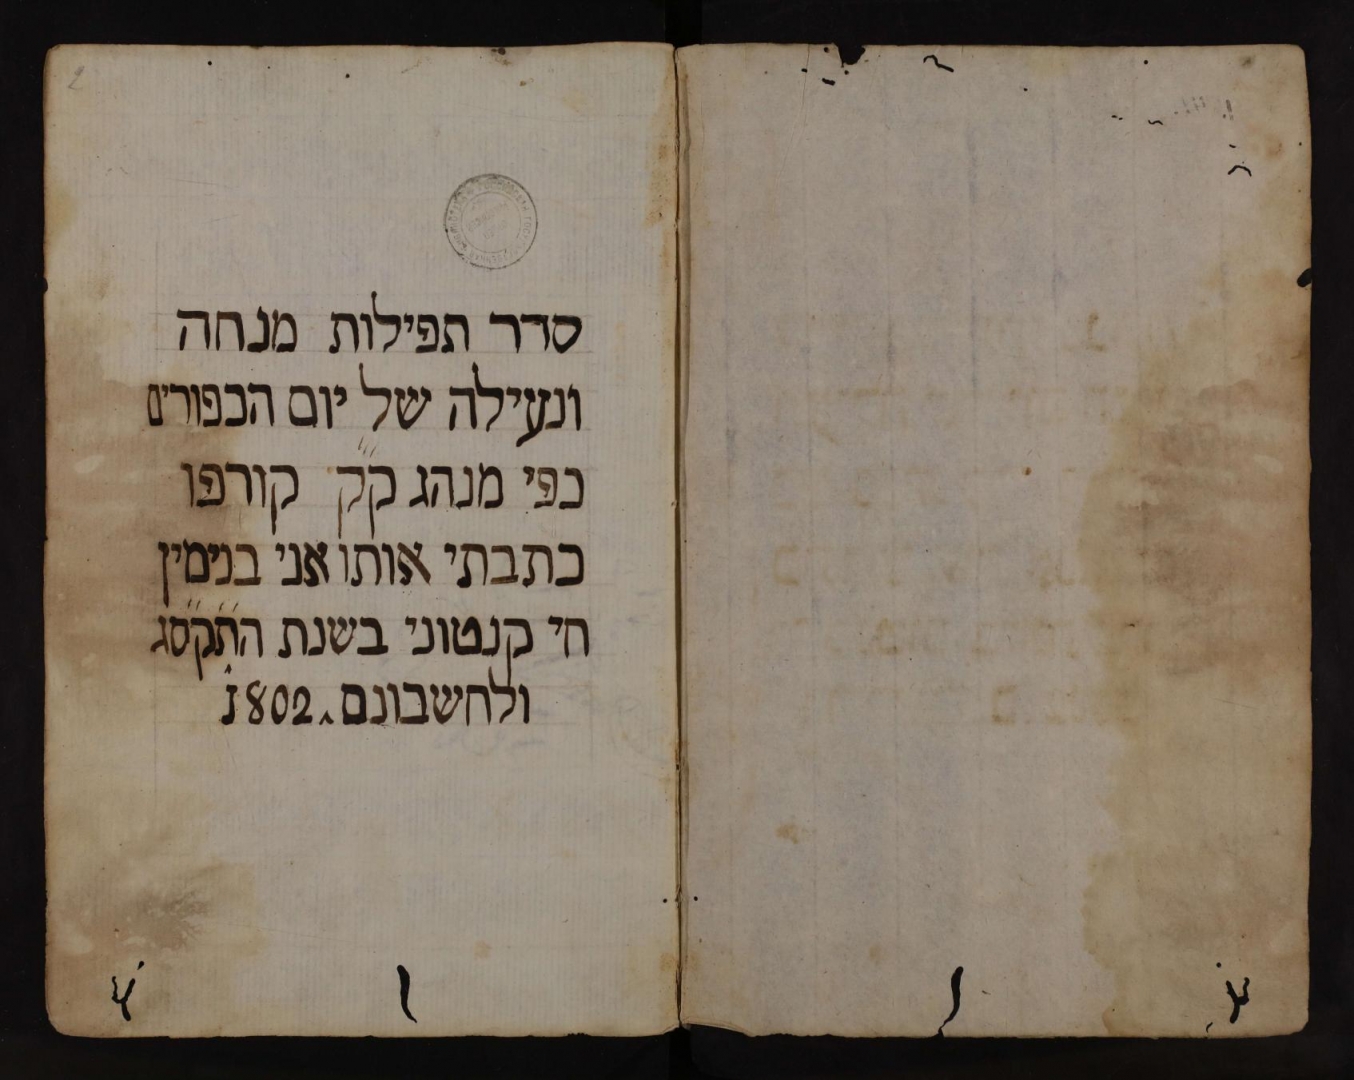 סדר תפילות מנחה
ונעילה של יום הכפורים
כפי מנהג ק״ק קורפו
כתבתי אותו אני בנימין
חי קנטוני בשנת ה״ת״קסג
ולחשבונם 1802
2